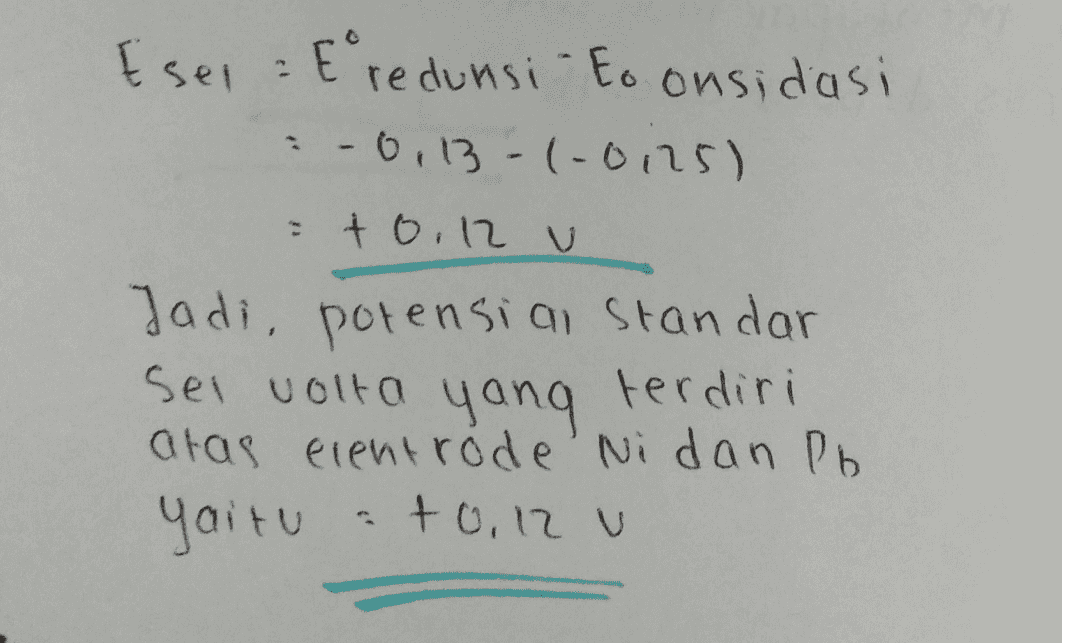 E sel = E° redunsi - Eo onsidasi
= - 0,13 - (-0,25)
= + 0,12 v
Jadi, potensial standar
sel volta yang terdiri
atas elentrode Ni dan Pb
yaitu = + 0,12 v